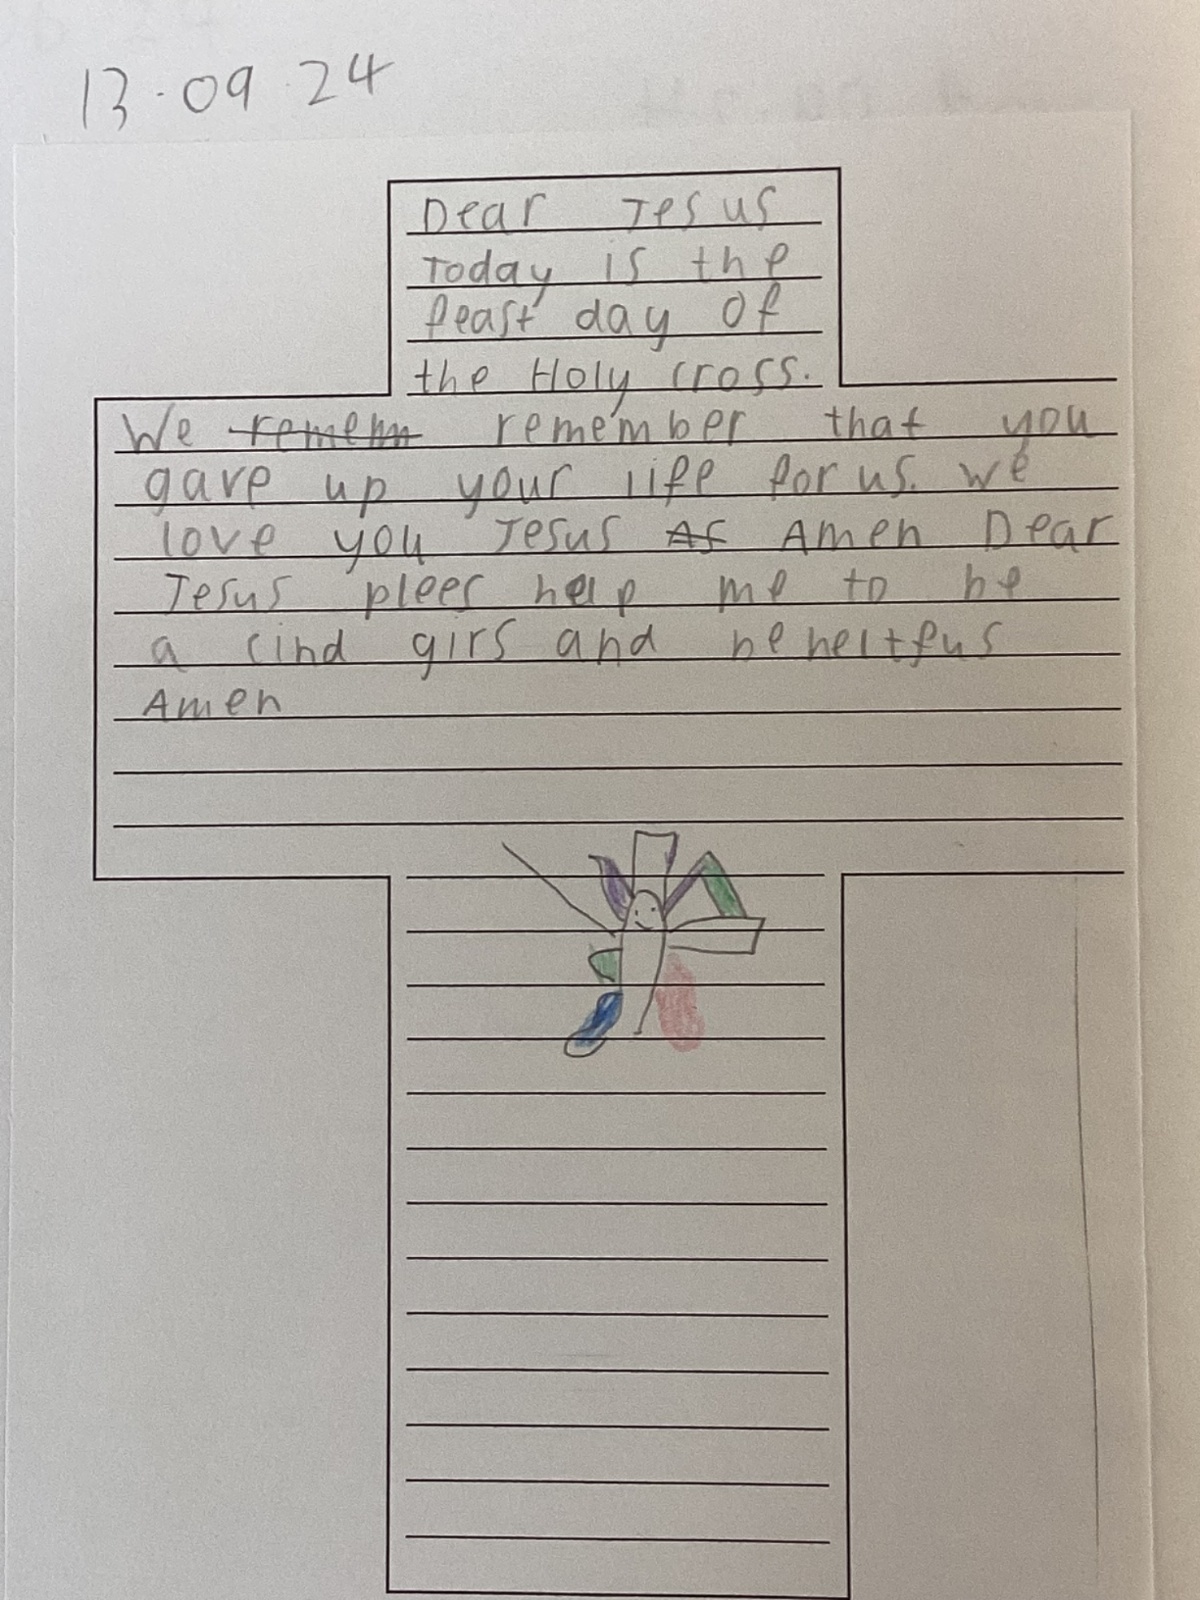 13.09.24
Dear Jesus
Today is the
feast day of
the Holy cross.
We remem remember that you
gave up your life for us. we
love you Jesus As Amen Dear
Jesus plees help me to be
a cind girs and be heltfus
Amen